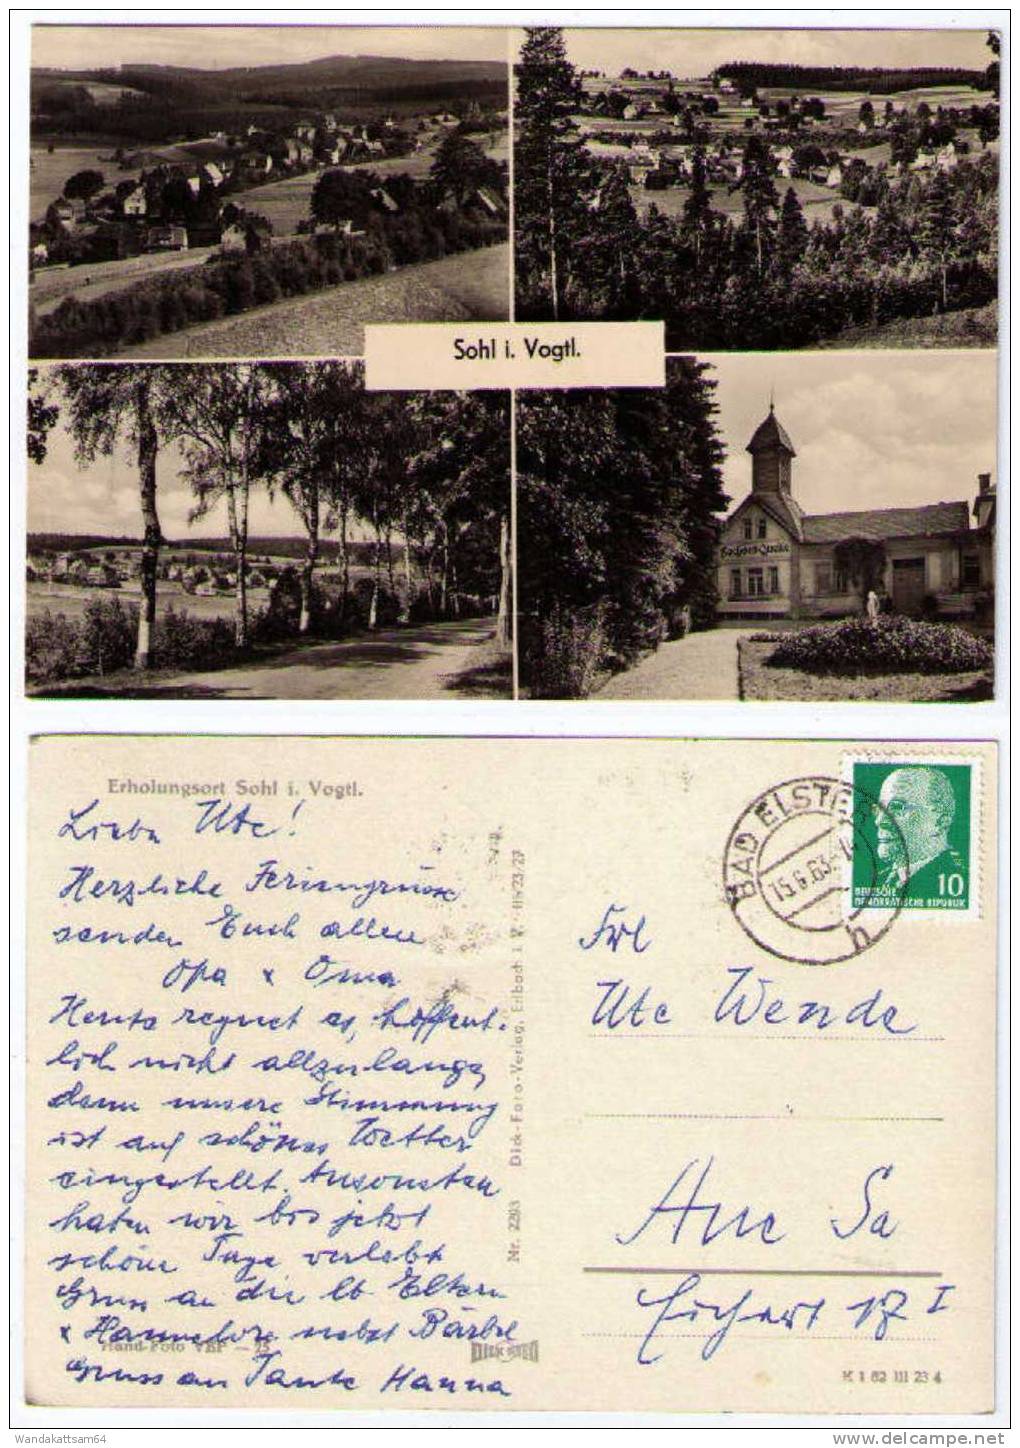 Sohl i. Vogtl.
Sachsen-Quelle
Erholungsort Sohl i. Vogtl.
Liebe Ute!
Herzliche Feriengrüsse
senden Euch allen
Opa + Oma
Heute regnet es, hoffent-
lich nicht allzulange,
denn unsere Stimmung
ist auf schönes Wetter
eingestellt. Ansonsten
haben wir bis jetzt
schöne Tage verlebt
Gruss an die lb. Eltern
+ Hannelore nebst Bärbel
Gruss an Tante Hanna
Hand-Foto VEP – 75
DICK
Nr. 2293 Dick-Foto-Verlag, Erlbach i. V. 11/23/27
BAD ELSTER
15.6.63
h
DEUTSCHE
DEMOKRATISCHE REPUBLIK
10
Frl
Ute Wende
Aue Sa
17 I
K 1 62 III 23 4
Wandakattsam64
www.delcampe.net